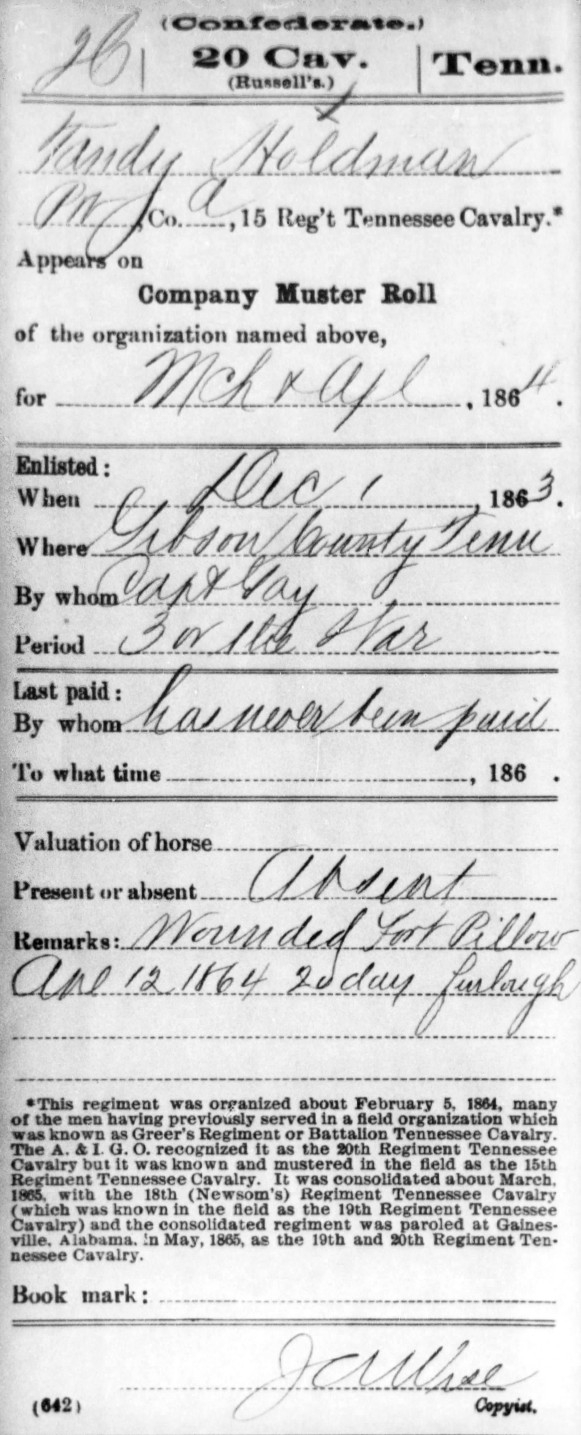 (Confederate.)
H | 20 Cav. | Tenn.
(Russell's.)
Tandy Holdman
Pvt, Co. A, 15 Reg't Tennessee Cavalry.*
Appears on
Company Muster Roll
of the organization named above,
for Mch & Apl, 1864.
Enlisted:
When Dec 1, 1863.
Where Gibson County Tenn
By whom Capt Gay
Period 3 or the War
Last paid:
By whom has never been paid
To what time , 186 .
Valuation of horse
Present or absent Absent
Remarks: Wounded Fort Pillow
Apl 12 1864 20 day furlough
*This regiment was organized about February 5, 1864, many
of the men having previously served in a field organization which
was known as Greer's Regiment or Battalion Tennessee Cavalry.
The A. & I. G. O. recognized it as the 20th Regiment Tennessee
Cavalry but it was known and mustered in the field as the 15th
Regiment Tennessee Cavalry. It was consolidated about March,
1865, with the 18th (Newsom's) Regiment Tennessee Cavalry
(which was known in the field as the 19th Regiment Tennessee
Cavalry) and the consolidated regiment was paroled at Gaines-
ville, Alabama, in May, 1865, as the 19th and 20th Regiment Ten-
nessee Cavalry.
Book mark:
Wise
(642) Copyist.